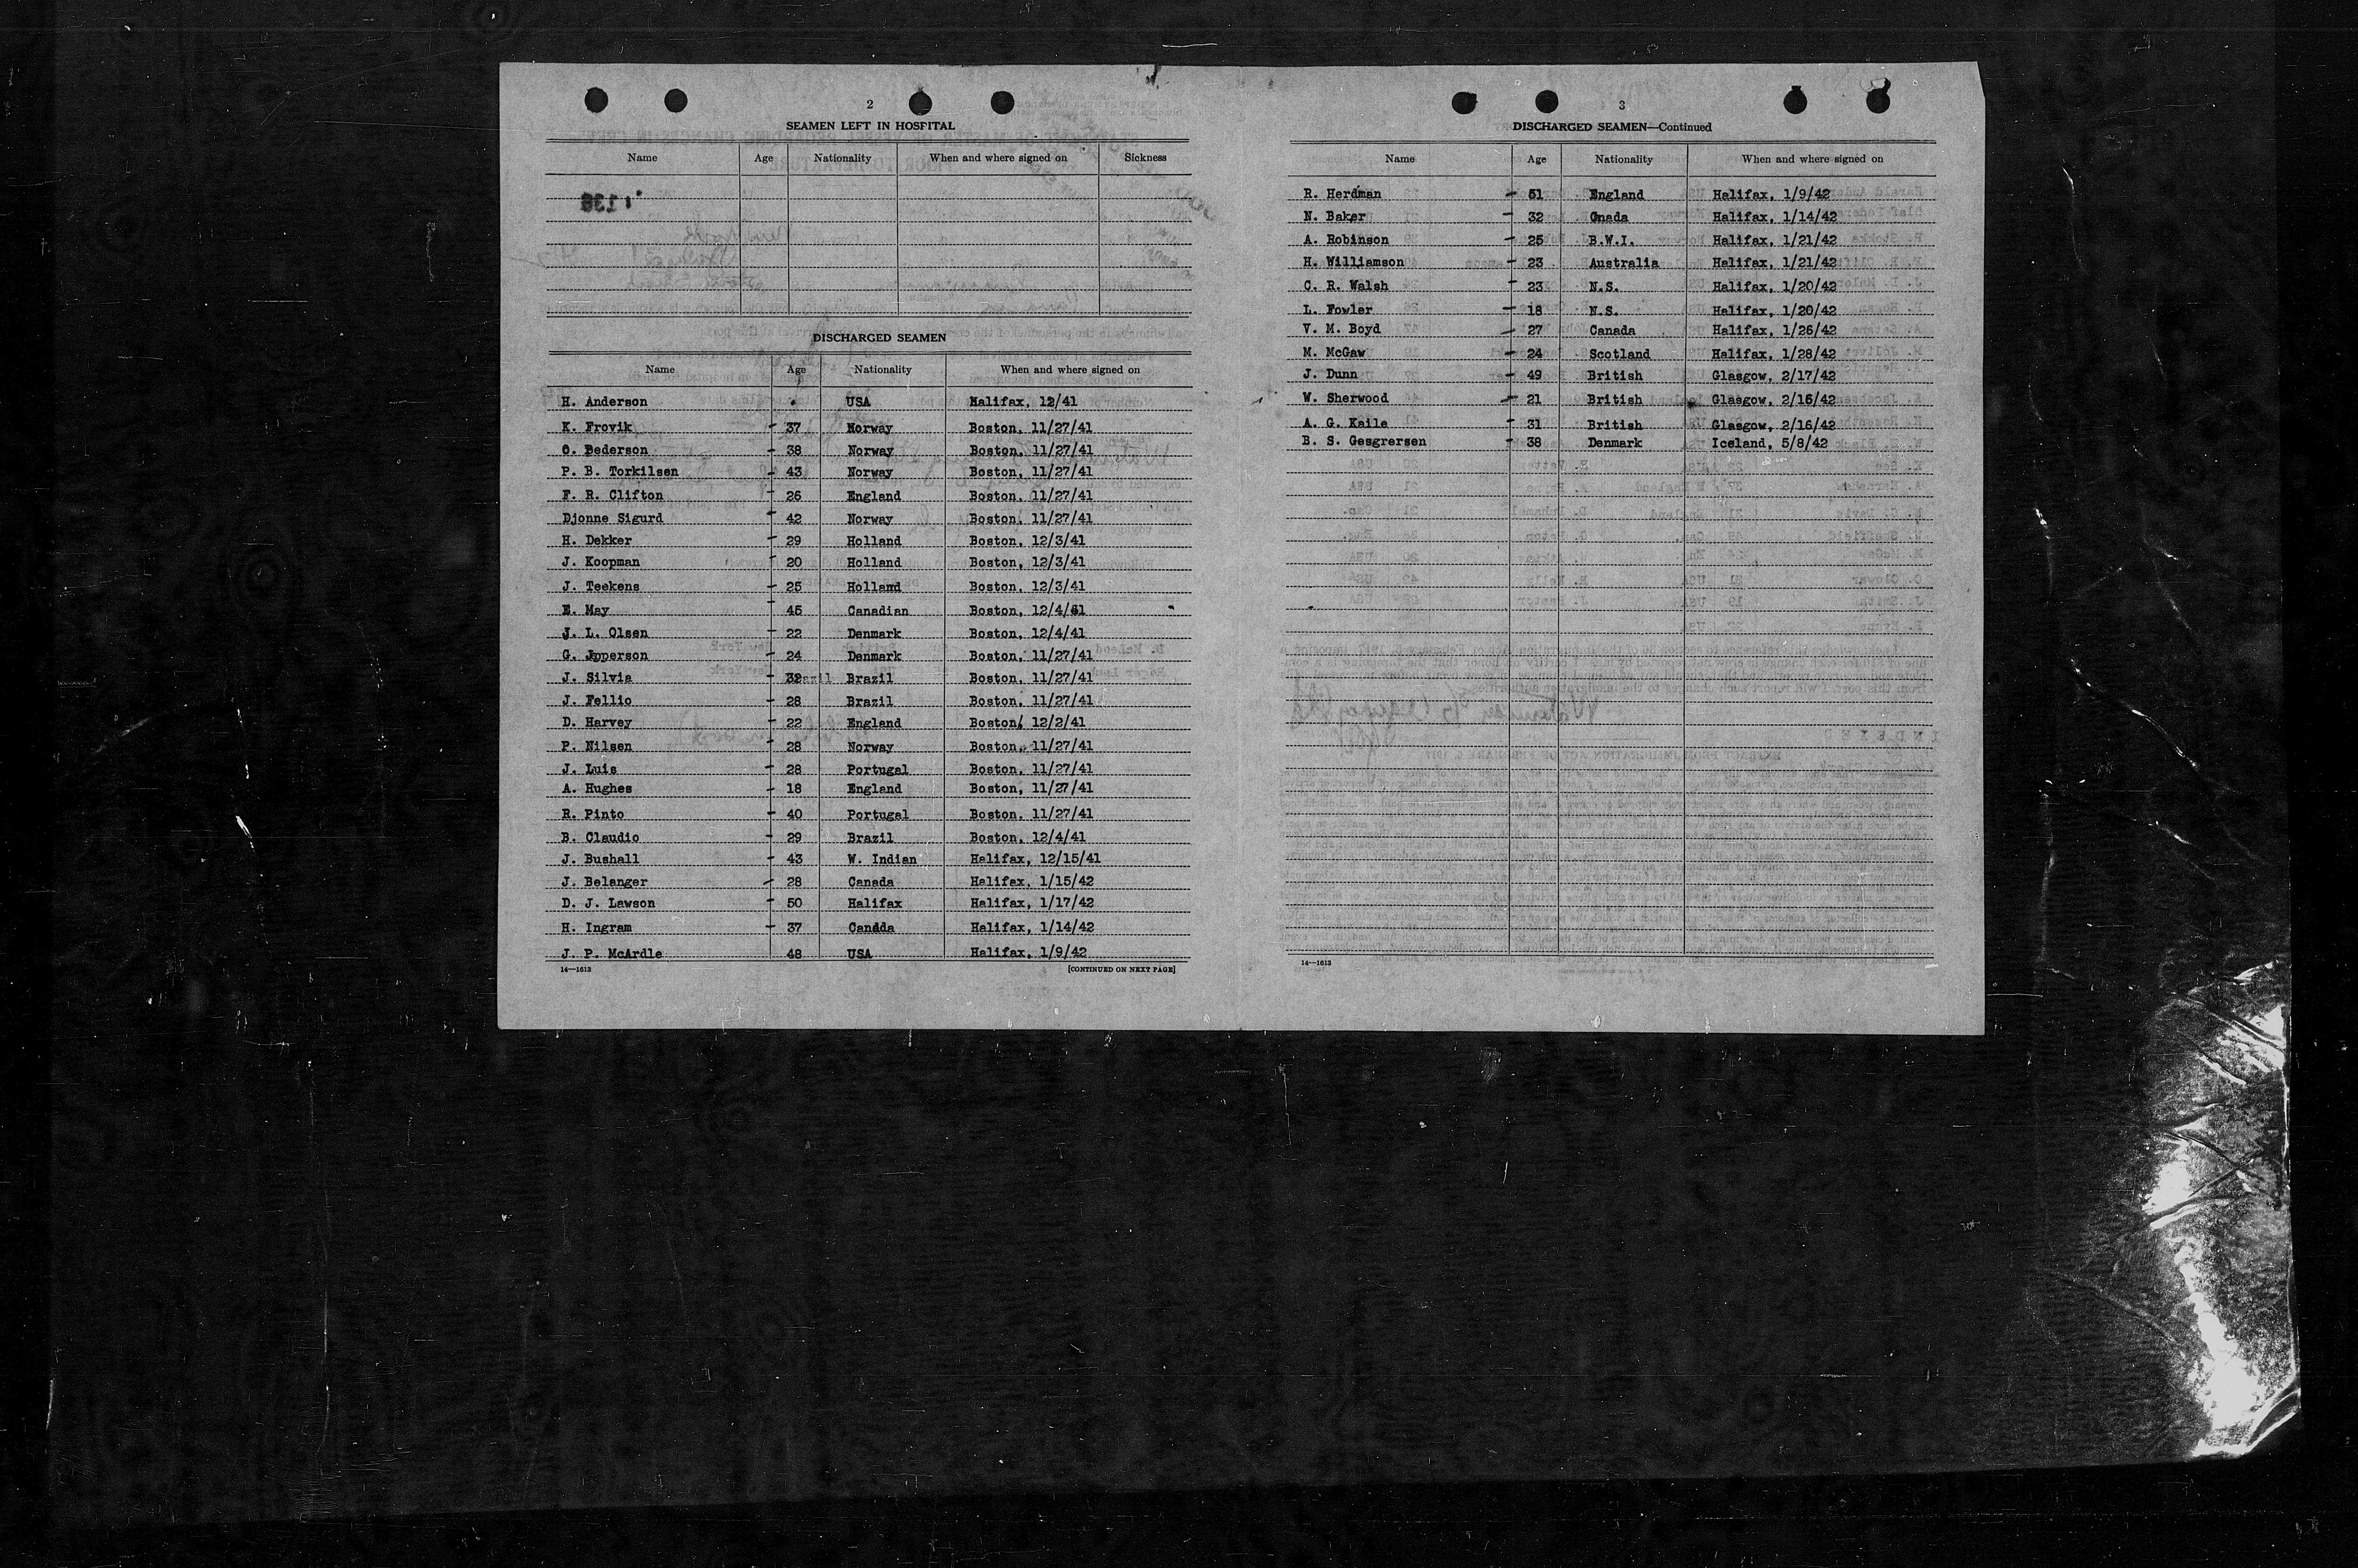 2
SEAMEN LEFT IN HOSPITAL
Name Age Nationality When and where signed on Sickness
DISCHARGED SEAMEN
Name Age Nationality When and where signed on
H. Anderson USA Halifax, 12/41
K. Frovik 37 Norway Boston, 11/27/41
O. Pederson 38 Norway Boston, 11/27/41
P. B. Torkilsen 43 Norway Boston, 11/27/41
F. R. Clifton 26 England Boston, 11/27/41
Djonne Sigurd 42 Norway Boston, 11/27/41
H. Dekker 29 Holland Boston, 12/3/41
J. Koopman 20 Holland Boston, 12/3/41
J. Teekens 25 Holland Boston, 12/3/41
E. May 45 Canadian Boston, 12/4/61
J. L. Olsen 22 Denmark Boston, 12/4/41
G. Jpperson 24 Denmark Boston, 11/27/41
J. Silvia 32 Brazil Boston, 11/27/41
J. Fellio 28 Brazil Boston, 11/27/41
D. Harvey 22 England Boston, 12/2/41
P. Nilsen 28 Norway Boston, 11/27/41
J. Luis 28 Portugal Boston, 11/27/41
A. Hughes 18 England Boston, 11/27/41
R. Pinto 40 Portugal Boston, 11/27/41
B. Claudio 29 Brazil Boston, 12/4/41
J. Bushall 43 W. Indian Halifax, 12/15/41
J. Belanger 28 Canada Halifax, 1/15/42
D. J. Lawson 50 Halifax Halifax, 1/17/42
H. Ingram 37 Canada Halifax, 1/14/42
J. P. McArdle 48 USA Halifax, 1/9/42
14—1613 [CONTINUED ON NEXT PAGE]
3
DISCHARGED SEAMEN—Continued
Name Age Nationality When and where signed on
R. Herdman 51 England Halifax, 1/9/42
N. Baker 32 Cnada Halifax, 1/14/42
A. Robinson 25 B.W.I. Halifax, 1/21/42
H. Williamson 23 Australia Halifax, 1/21/42
C. R. Walsh 23 N.S. Halifax, 1/20/42
L. Fowler 18 N.S. Halifax, 1/20/42
V. M. Boyd 27 Canada Halifax, 1/26/42
M. McGaw 24 Scotland Halifax, 1/28/42
J. Dunn 49 British Glasgow, 2/17/42
W. Sherwood 21 British Glasgow, 2/16/42
A. G. Kaile 31 British Glasgow, 2/16/42
B. S. Gesgrersen 38 Denmark Iceland, 5/8/42
14—1613